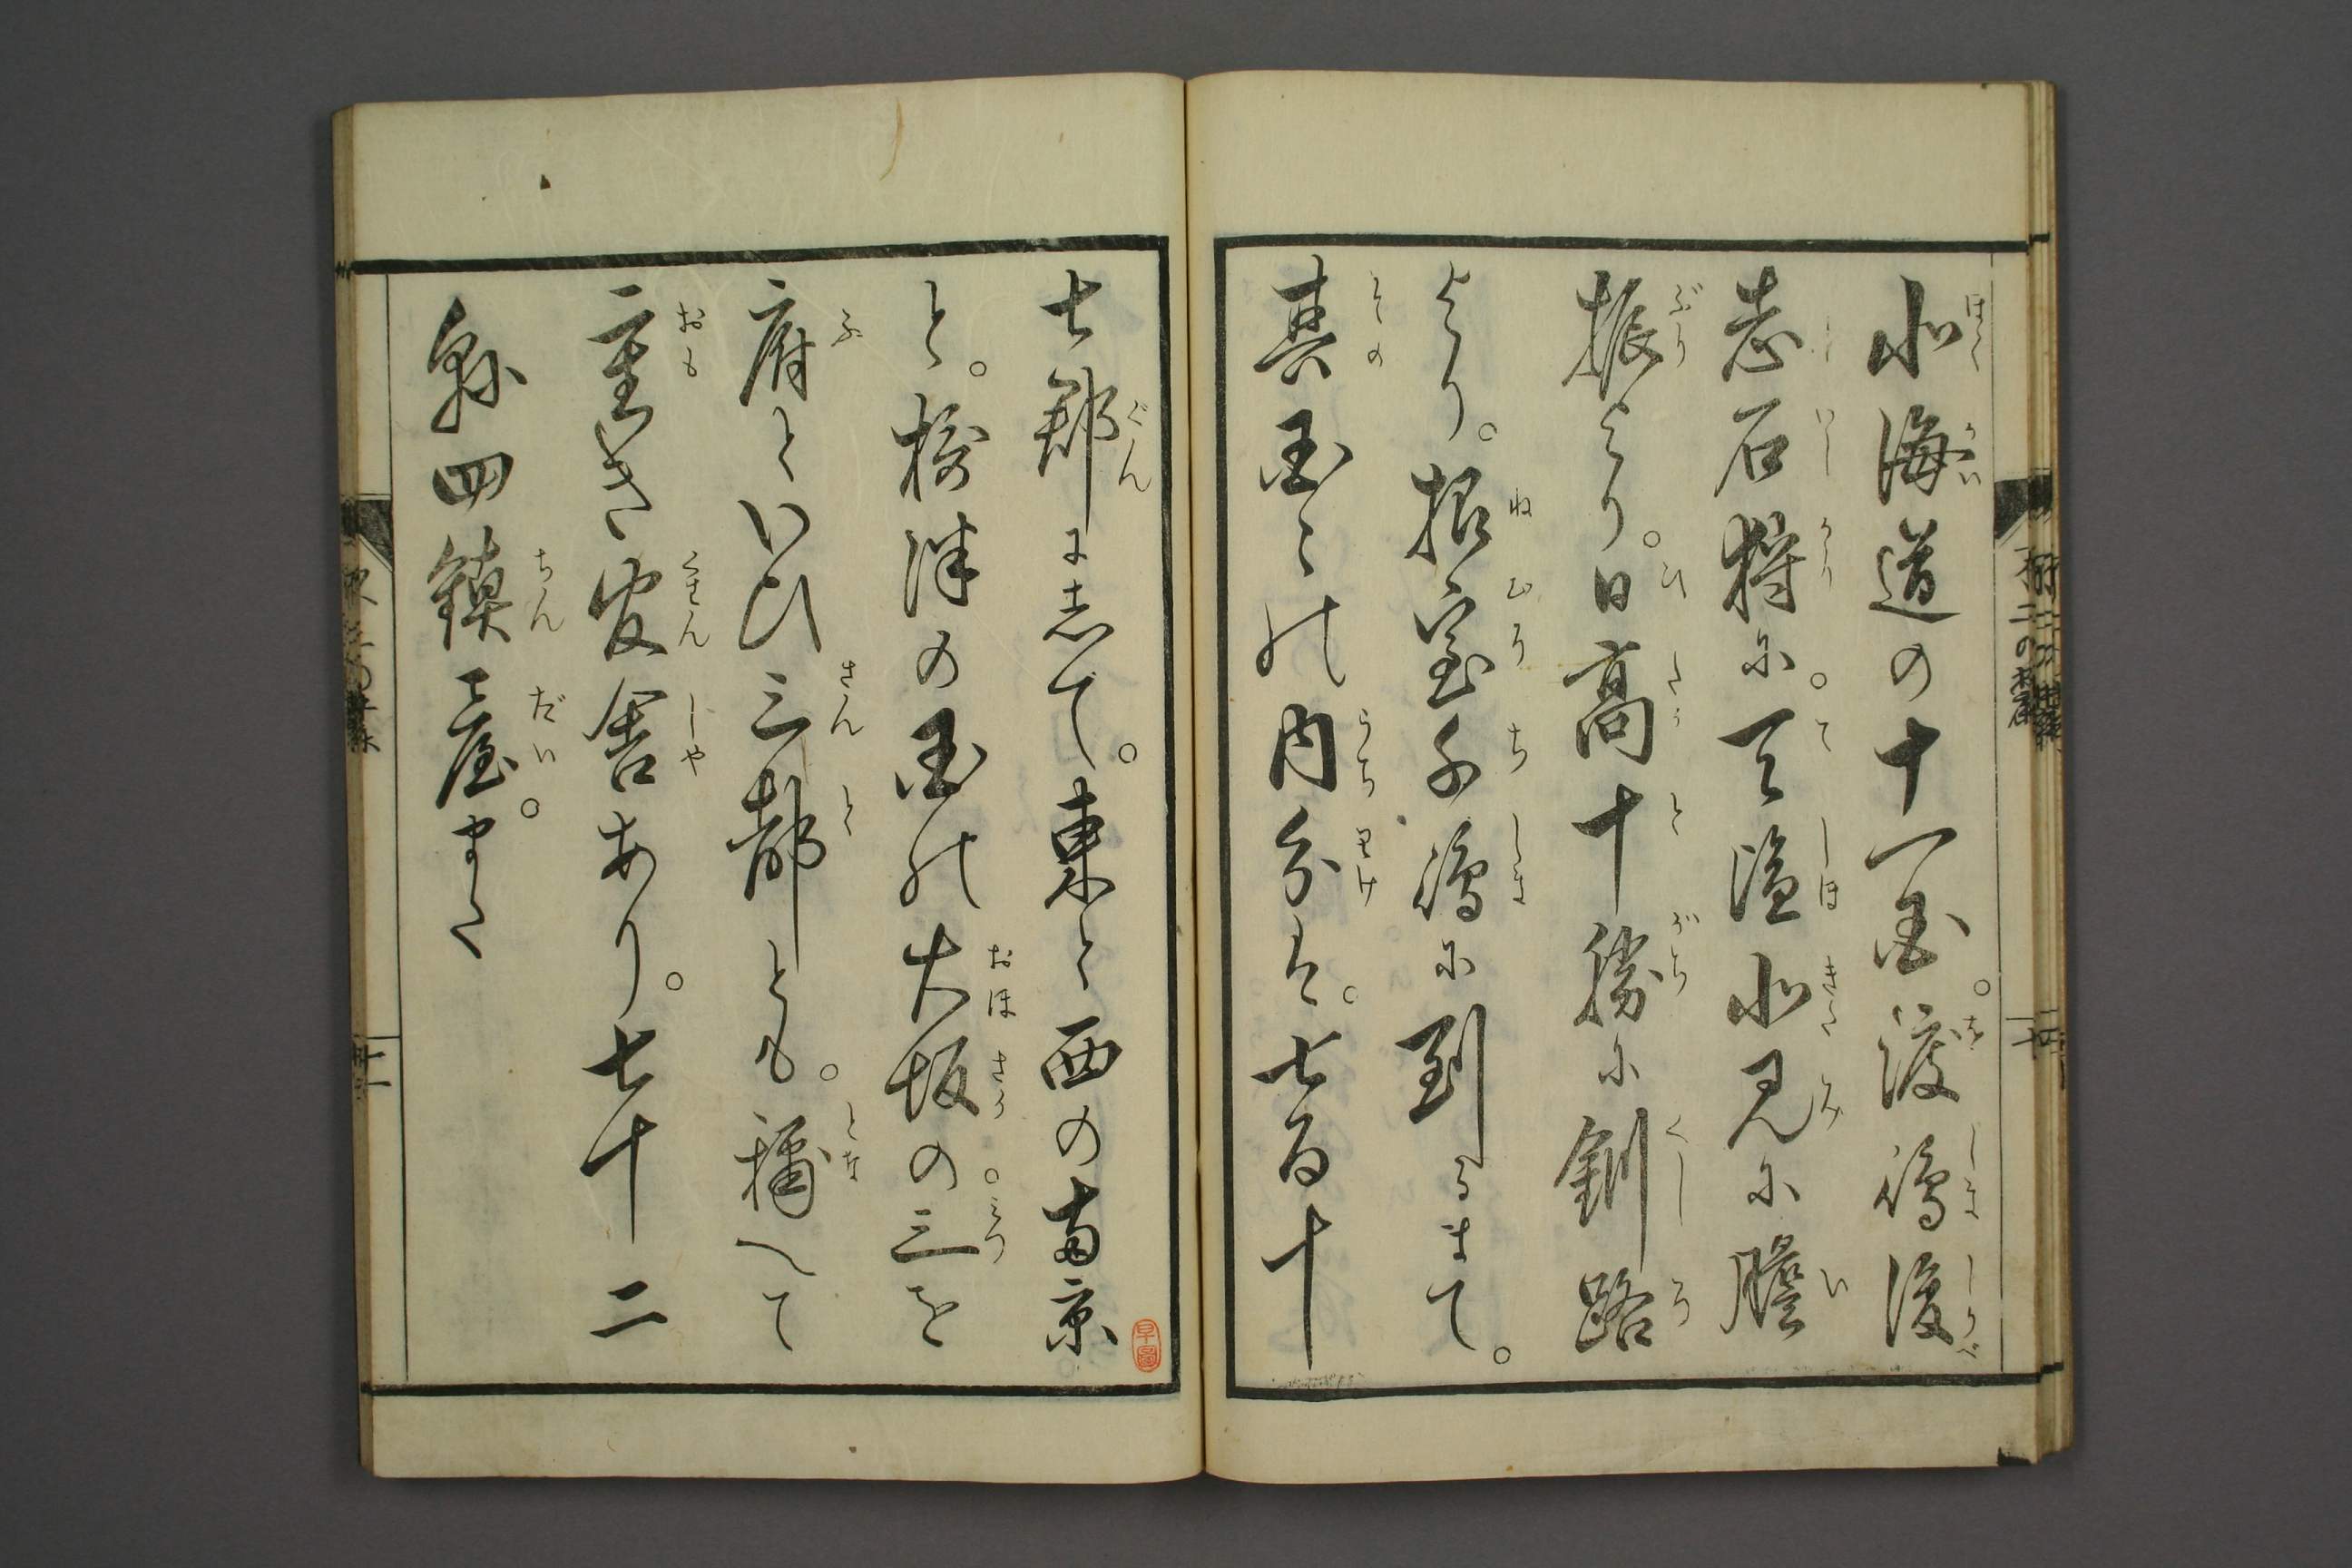 北海道の十一国。渡嶋後
志石狩に。天塩北見に膽
振より。日高十勝に釧路
より。根室千嶋に到るまて。
其国々の内分は。七百十
七郡にして。東と西の両京
と。摂津の国の大坂の三を
府といひ三都とも。称へて
重き官舎あり。七十二
縣四鎮臺。また